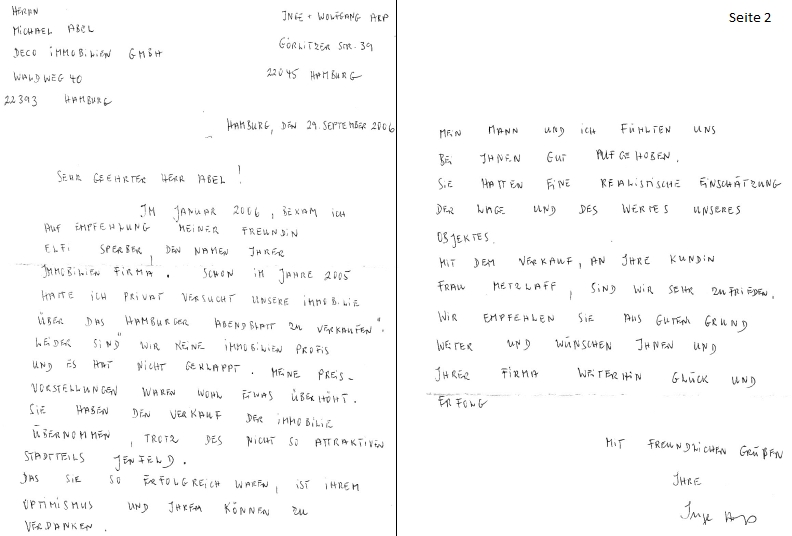 HERRN
MICHAEL ABEL
DECO IMMOBILIEN GMBH
WALDWEG 40
22393 HAMBURG
INGE + WOLFGANG ARP
GÖRLITZER STR. 39
22045 HAMBURG
HAMBURG, DEN 29. SEPTEMBER 2006
SEHR GEEHRTER HERR ABEL!
IM JANUAR 2006, BEKAM ICH
AUF EMPFEHLUNG MEINER FREUNDIN
ELFI SPERBER, DEN NAMEN IHRER
IMMOBILIEN FIRMA. SCHON IM JAHRE 2005
HATTE ICH PRIVAT VERSUCHT UNSERE IMMOBILIE
ÜBER DAS HAMBURGER ABENDBLATT ZU VERKAUFEN".
LEIDER SIND" WIR KEINE IMMOBILIEN PROFIS
UND ES HAT NICHT GEKLAPPT. MEINE PREIS-
VORSTELLUNGEN WAREN WOHL ETWAS ÜBERHÖHT.
SIE HABEN DEN VERKAUF DER IMMOBILIE
ÜBERNOMMEN, TROTZ DES NICHT SO ATTRAKTIVEN
STADTTEILS JENFELD.
DAS SIE SO ERFOLGREICH WAREN, IST IHREM
OPTIMISMUS UND IHREM KÖNNEN ZU
VERDANKEN.
Seite 2
MEIN MANN UND ICH FÜHLTEN UNS
BEI IHNEN GUT AUFGEHOBEN.
SIE HATTEN EINE REALISTISCHE EINSCHÄTZUNG
DER LAGE UND DES WERTES UNSERES
OBJEKTES.
MIT DEM VERKAUF, AN IHRE KUNDIN
FRAU METZLAFF, SIND WIR SEHR ZUFRIEDEN.
WIR EMPFEHLEN SIE AUS GUTEM GRUND
WEITER UND WÜNSCHEN IHNEN UND
IHRER FIRMA WEITERHIN GLÜCK UND
ERFOLG
MIT FREUNDLICHEN GRÜßEN
IHRE
Inge Arp